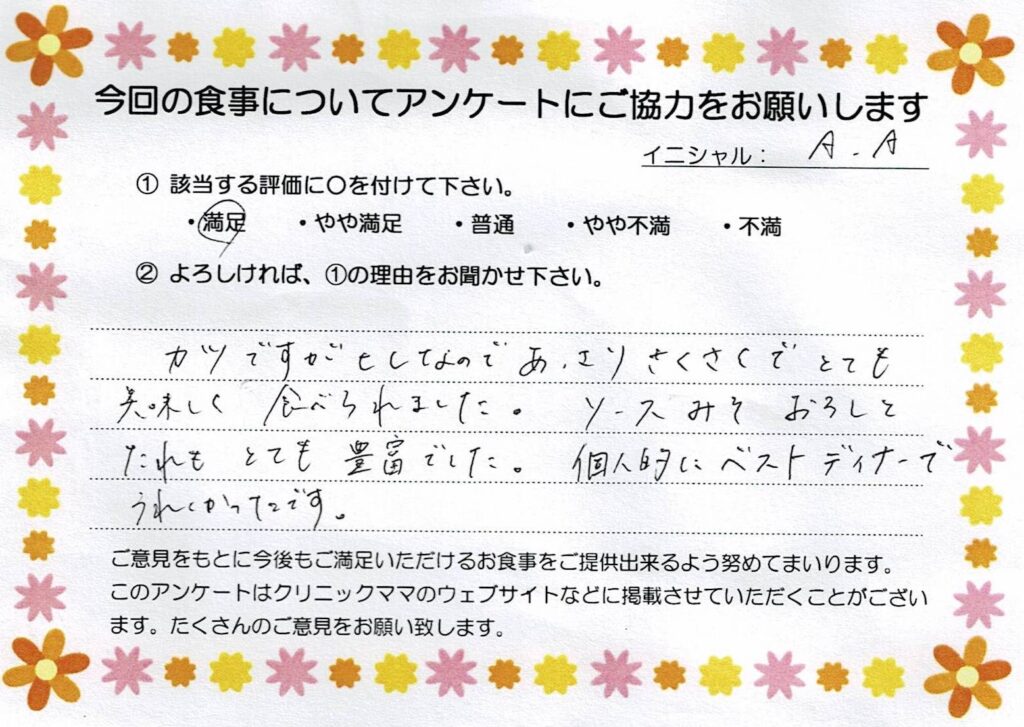 今回の食事についてアンケートにご協力をお願いします
イニシャル： A.A
① 該当する評価に〇を付けて下さい。
・満足 ・やや満足 ・普通 ・やや不満 ・不満
② よろしければ、①の理由をお聞かせ下さい。
カツですがヒレなのであっさりさくさくでとても
美味しく 食べられました。 ソース みそ おろしと
たれも とても 豊富でした。 個人的に ベストディナーで
うれしかったです。
ご意見をもとに今後もご満足いただけるお食事をご提供出来るよう努めてまいります。
このアンケートはクリニックママのウェブサイトなどに掲載させていただくことがござい
ます。たくさんのご意見をお願い致します。